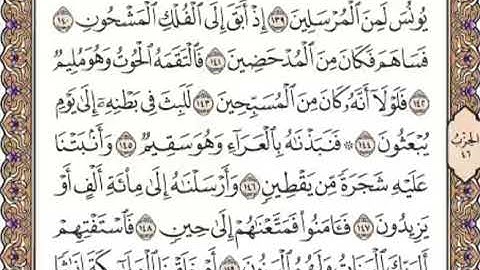 يُونُسَ لَمِنَ ٱلْمُرْسَلِينَ ١٣٩ إِذْ أَبَقَ إِلَى ٱلْفُلْكِ ٱلْمَشْحُونِ ١٤٠
فَسَاهَمَ فَكَانَ مِنَ ٱلْمُدْحَضِينَ ١٤١ فَٱلْتَقَمَهُ ٱلْحُوتُ وَهُوَ مُلِيمٌ
١٤٢ فَلَوْلَآ أَنَّهُۥ كَانَ مِنَ ٱلْمُسَبِّحِينَ ١٤٣ لَلَبِثَ فِى بَطْنِهِۦٓ إِلَىٰ يَوْمِ
يُبْعَثُونَ ١٤٤ ۞ فَنَبَذْنَٰهُ بِٱلْعَرَآءِ وَهُوَ سَقِيمٌ ١٤٥ وَأَنۢبَتْنَا
عَلَيْهِ شَجَرَةً مِّن يَقْطِينٍ ١٤٦ وَأَرْسَلْنَٰهُ إِلَىٰ مِا۟ئَةِ أَلْفٍ أَوْ
يَزِيدُونَ ١٤٧ فَـَٔامَنُوا۟ فَمَتَّعْنَٰهُمْ إِلَىٰ حِينٍ ١٤٨ فَٱسْتَفْتِهِمْ
الحزب
٤٦